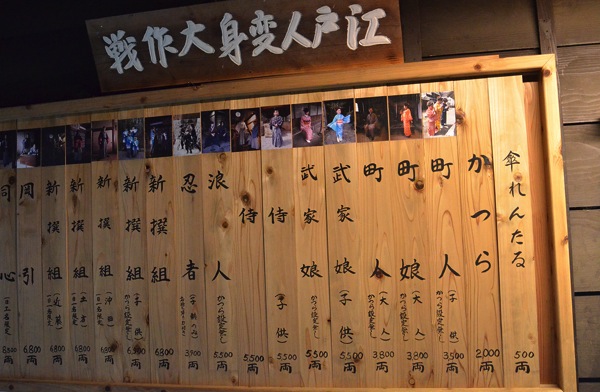 江戸人変身大作戦
傘れんたる 500両
かつら 2,000両
町人 (子供) 3,500両
町娘 (大人) かつら設定無し 3,800両
町人 (大人) かつら設定無し 3,800両
武家娘 (子供) 5,500両
武家娘 かつら設定無し 5,500両
侍 (子供) 5,500両
侍 5,500両
浪人 かつら設定無し 5,500両
忍者 3,900両
新撰組 6,800両
新撰組 (子供) かつら設定無し 6,800両
新撰組 (沖田) 6,800両
新撰組 (土方) 6,800両
新撰組 (近藤) 6,800両
岡引 6,800両
同心 両